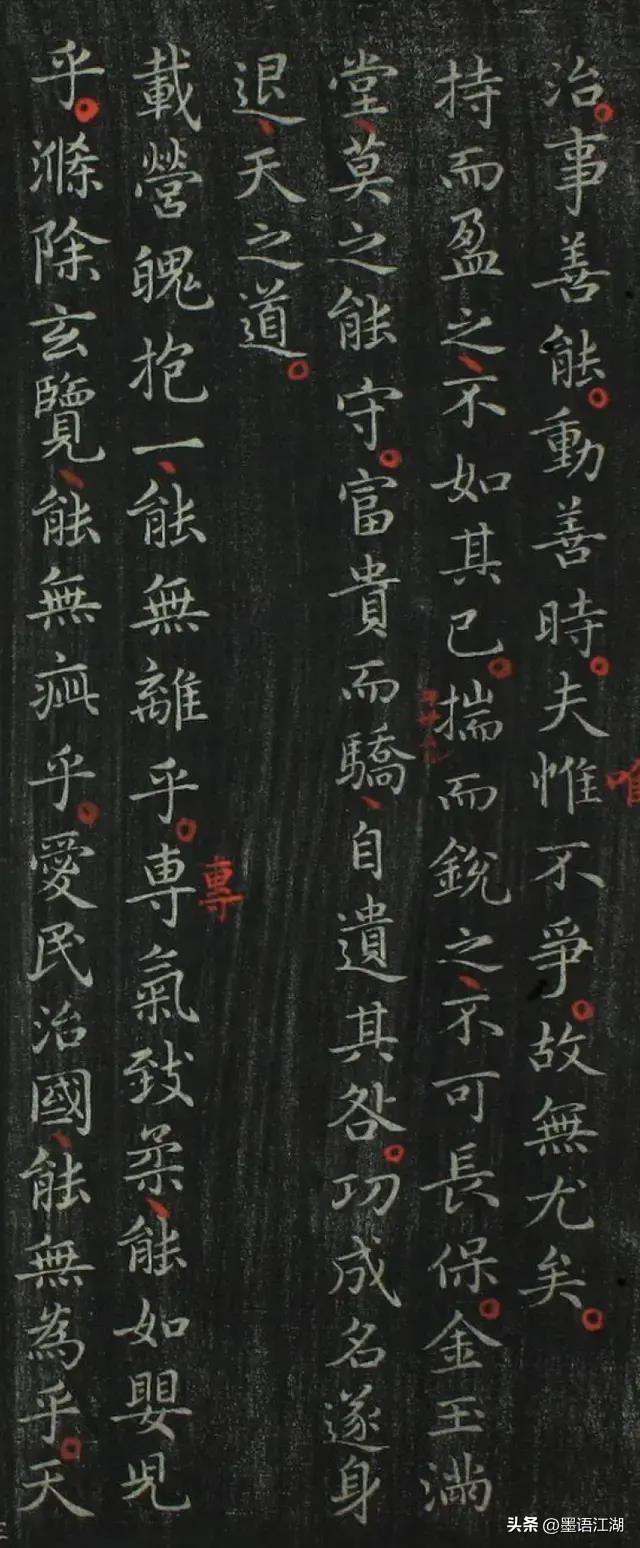 治。事善能。動善時。夫惟不爭。故無尤矣。
唯
持而盈之、不如其已。揣而銳之、不可長保。金玉滿
堂、莫之能守。富貴而驕、自遺其咎。功成名遂身
退、天之道。
載營魄抱一、能無離乎。專氣致柔、能如嬰兒
專
乎。滌除玄覽、能無疵乎。愛民治國、能無為乎。天
头条 @墨语江湖